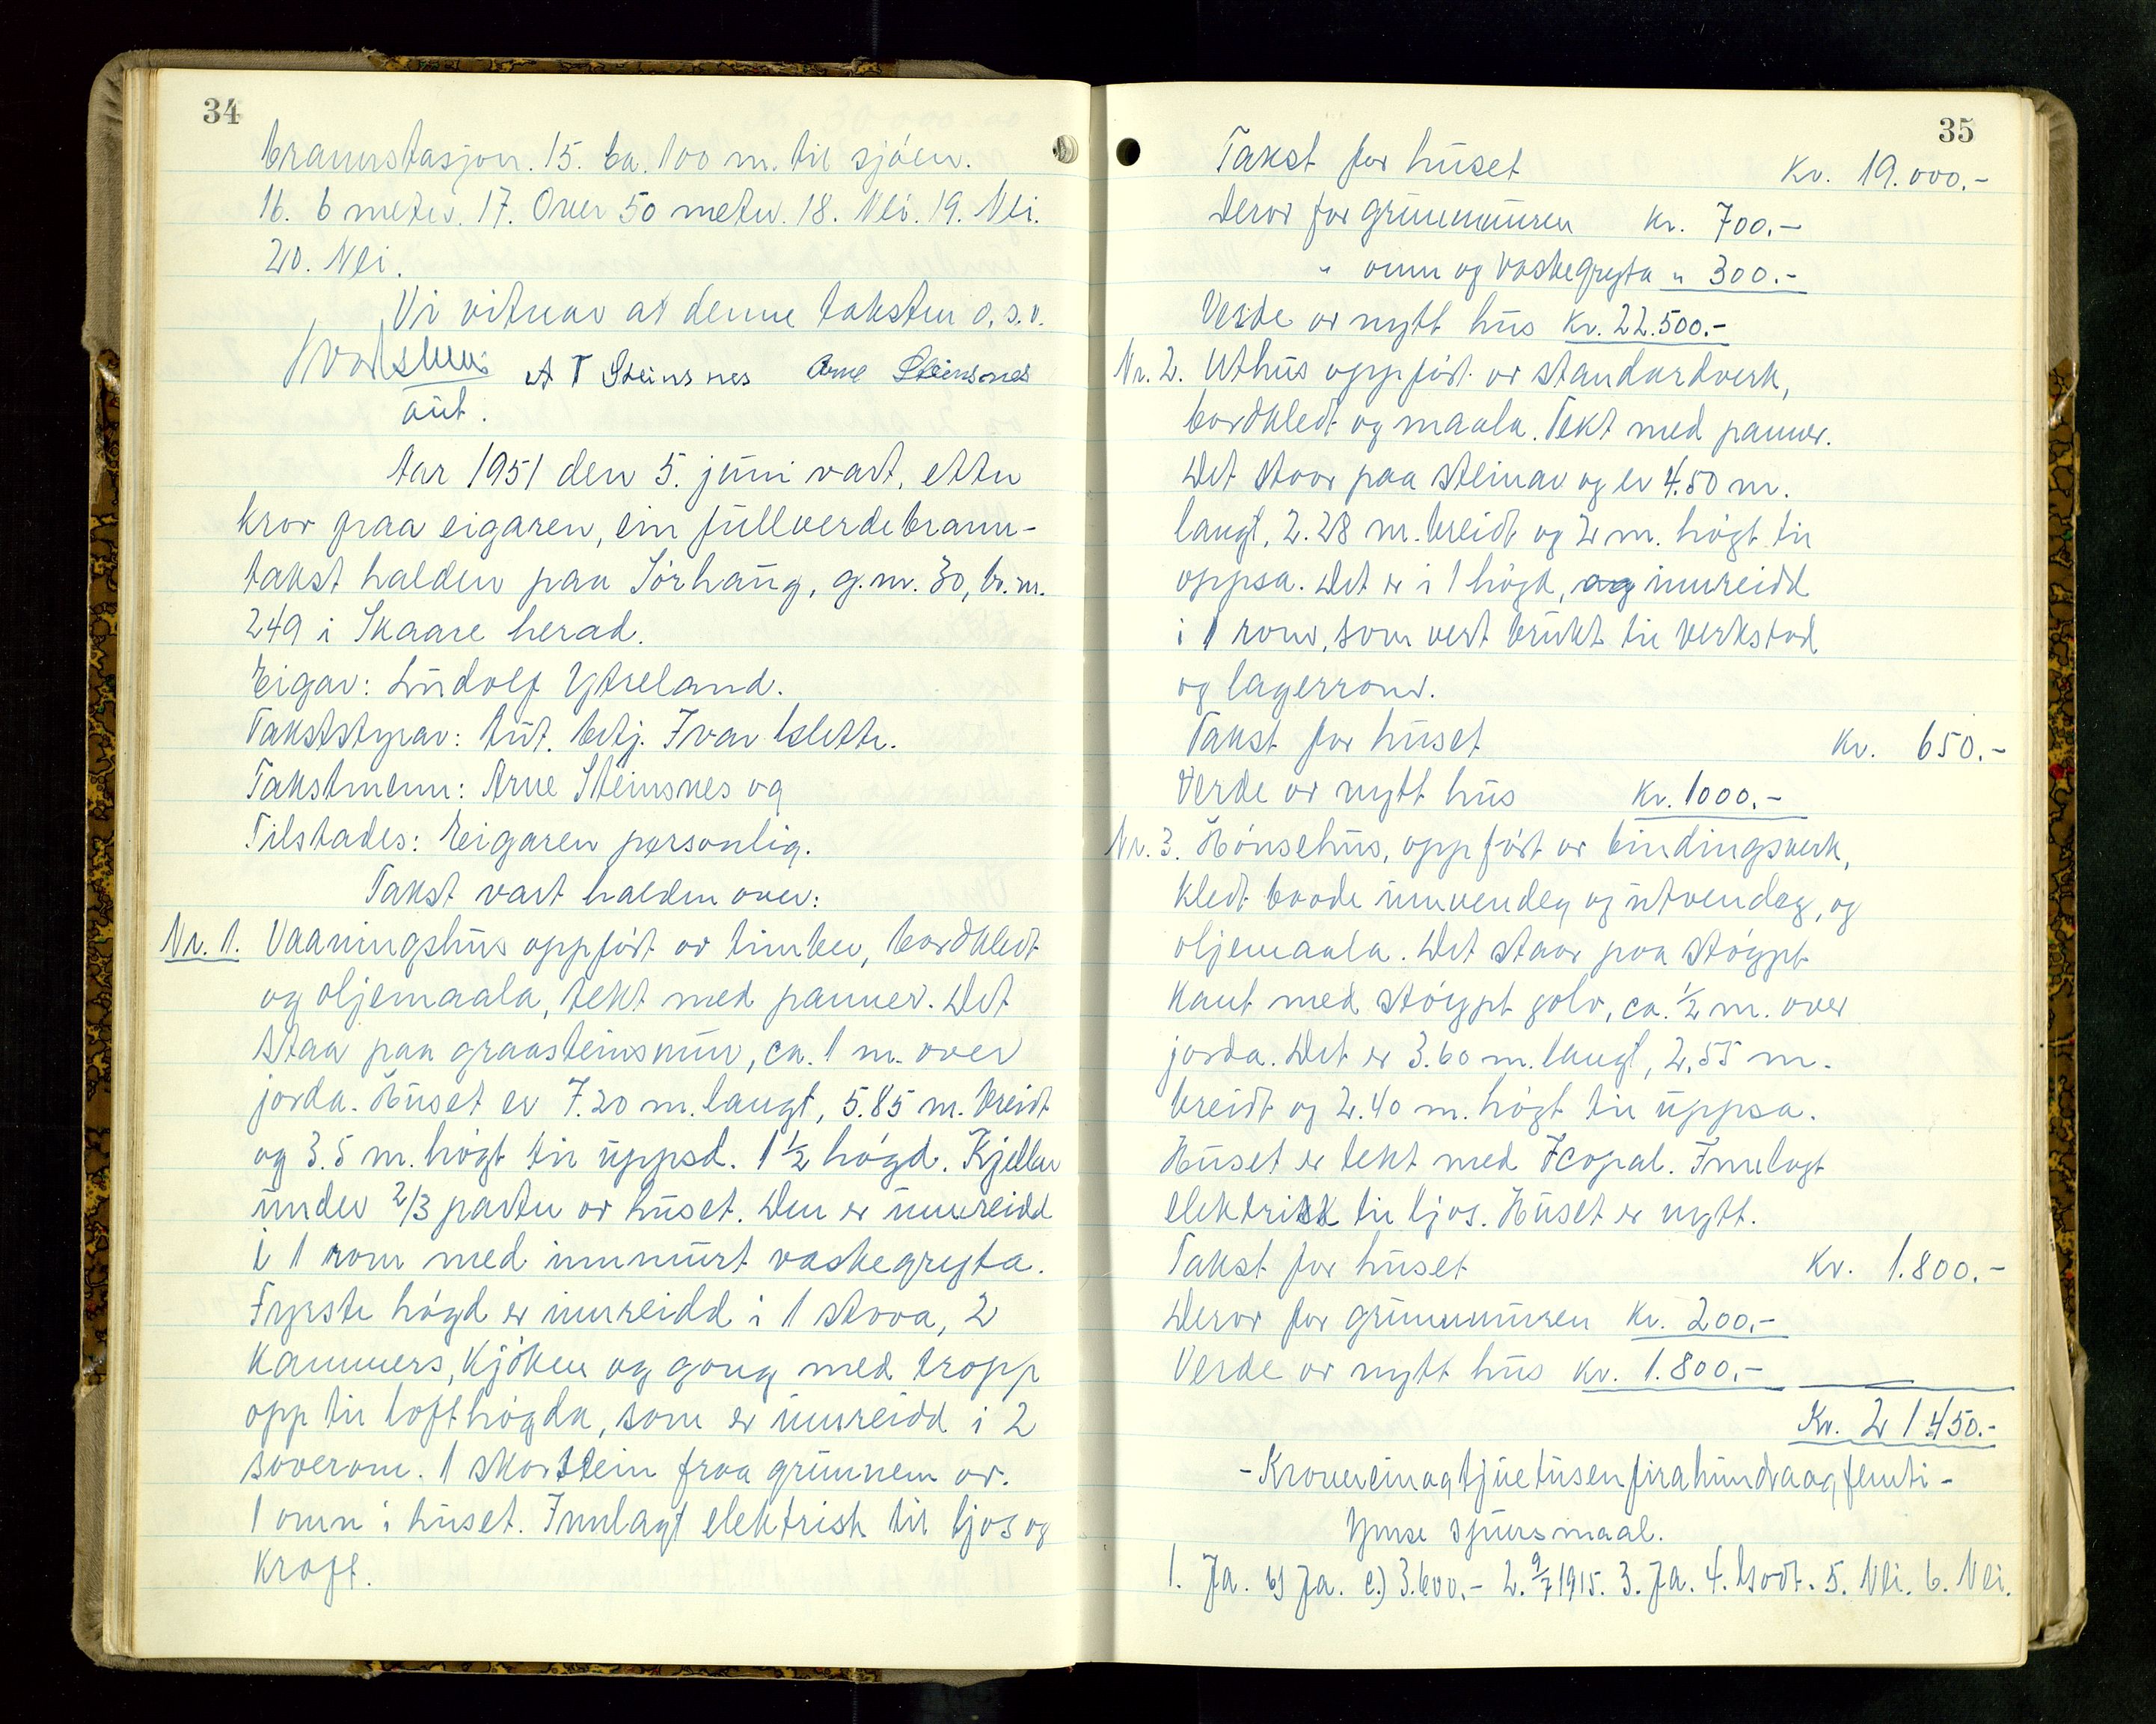 34
brannstasjon. 15. Ca. 100 m. til sjóen.
16. 6 meter. 17. Over 50 meter. 18. Nei. 19. Nei.
20. Nei.
Vi vitnar at denne taksten o.s.v.
A T Steinsnes Arne Steinsnes
aut.
Aar 1951 den 5. juni vart, etter
krav fraa eigaren, ein fullverdebrann-
takst halden paa Sórhaug, g.nr. 30, br.nr.
249 i Skaare herad.
Eigar: Ludolf Ytreland.
Takststyrar: Aut. betj. Ivar Slette.
Takstmenn: Arne Steinsnes og
Tilstades: Eigaren personlig.
Takst vart halden over:
Nr. 1. Vaaningshus oppfórt av timber, bordkledt
og oljemaala, tekt med panner. Det
staa paa graasteinsmur, ca. 1 m. over
jorda. Huset er 7.20 m. langt, 5.85 m. breidt
og 3.5 m. hógt til uppsd. 1 1/2 hógd. Kjeller
under 2/3 parten av huset. Den er innreidd
i 1 rom med innmurt vaskegryta.
Fyrste hógd er innreidd i 1 stova, 2
kammers, kjóken og gong med tropp
opp til lofthógda, som er innreidd i 2
soverom. 1 skorstein fraa grunnem av.
1 omn i huset. Innlagt elektrisk til ljos og
kraft.
35
Takst for huset Kr. 19.000.-
Derav for grunnmuren Kr. 700.-
" omn og vaskegryta " 300.-
Verde av nytt hus Kr. 22.500.-
Nr. 2. Uthus oppfórt av standardverk,
bordkledt og maala. Tekt med panner.
Det staar paa steinar og er 4.50 m.
langt, 2.28 m. breidt og 2 m. hógt til
oppsa. Det er i 1 hógd, og innreidd
i 1 rom, som vert brukt til verkstad
og lagerrom.
Takst for huset Kr. 650.-
Verde av nytt hus Kr. 1000.-
Nr. 3. Hónsehus, oppfórt av bindingsverk,
kledt baade innvendeg og utvendeg, og
oljemaala. Det staar paa stóypt
kant med stóypt golv, ca. 1/2 m. over
jorda. Det er 3.60 m. langt, 2.55 m.
breidt og 2.40 m. hógt til uppsa.
Huset er tekt med Icopal. Innlagt
elektrisk til ljos. Huset er nytt.
Takst for huset Kr. 1.800.-
Derav for grunnmuren Kr. 200.-
Verde av nytt hus Kr. 1.800.-
Kr. 21.450.-
- Kronereinogtjuetusenfirahundraogfemti -
Ymse spursmaal.
1. Ja. b) Ja. c.) 3.600.- 2. 9/7 1915. 3. Ja. 4. Godt. 5. Nei. 6. Nei.